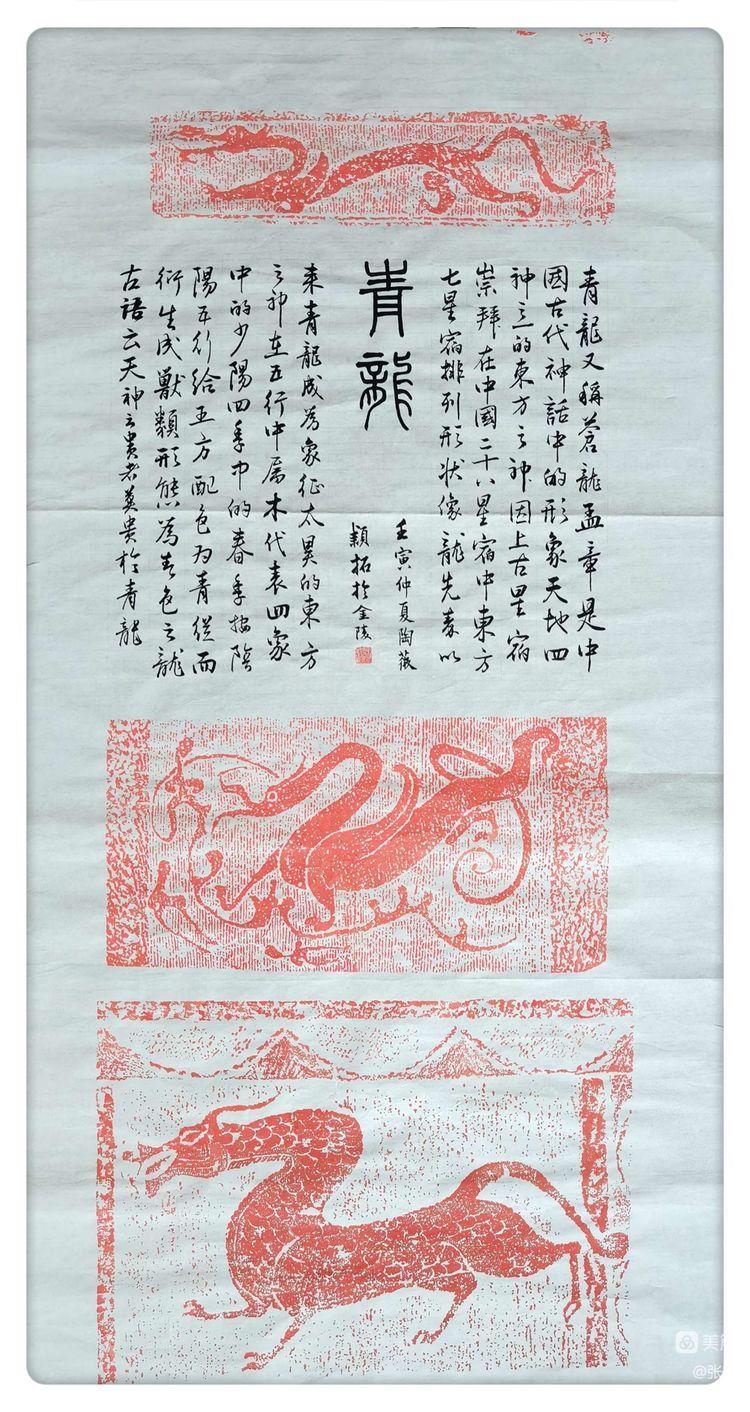 青龍又稱蒼龍孟章是中
國古代神話中的形象天地四
神之一的東方之神因上古星宿
崇拜在中國二十八星宿中東方
七星宿排列形狀像龍先秦以
青龍
壬寅仲夏陶薇
穎拓於金陵
來青龍成為象征太昊的東方
之神在五行中屬木代表四象
中的少陽四季中的春季按陰
陽五行給五方配色为青從而
衍生成獸類形態為青色之龍
古語云天神之貴者莫貴於青龍
美
@张